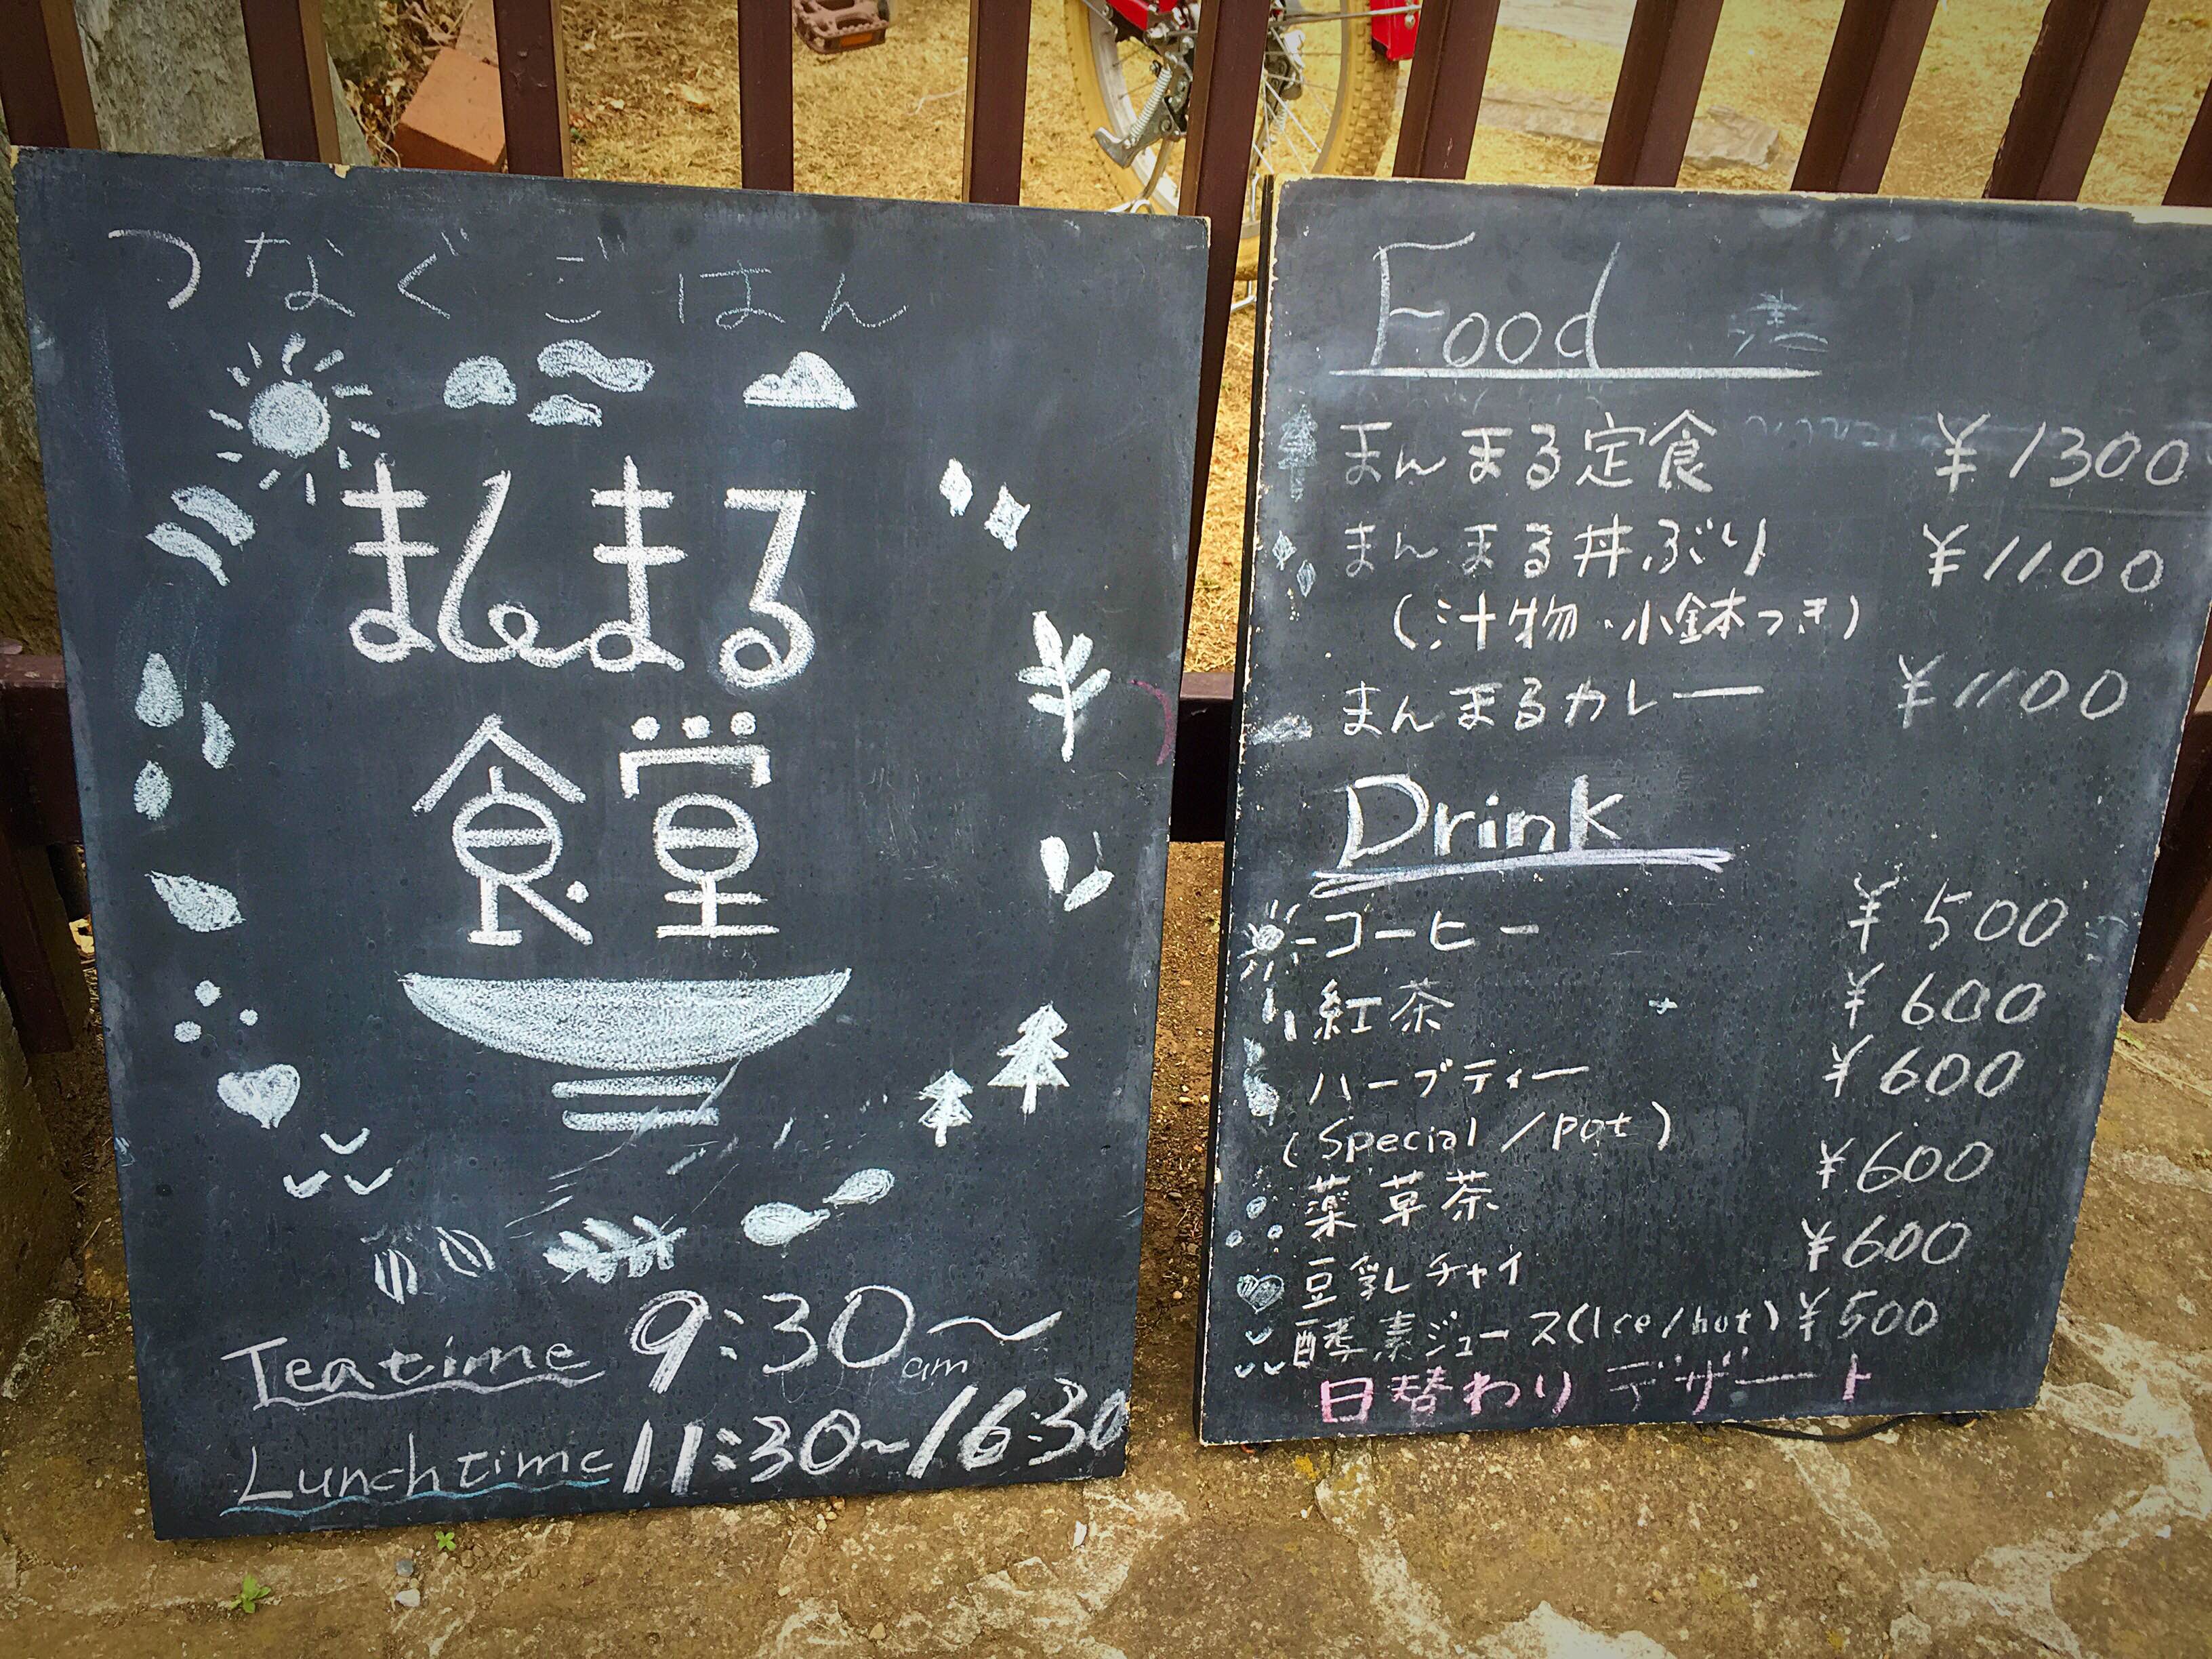 つなぐごはん
まんまる
食堂
Teatime 9:30~
am
Lunchtime 11:30~16:30
Food
まんまる定食 ¥1300
まんまる丼ぶり ¥1100
(汁物・小鉢つき)
まんまるカレー ¥1100
Drink
コーヒー ¥500
紅茶 ¥600
ハーブティー ¥600
(Special/pot)
薬草茶 ¥600
豆乳チャイ ¥600
酵素ジュース(Ice/hot) ¥500
日替わりデザート